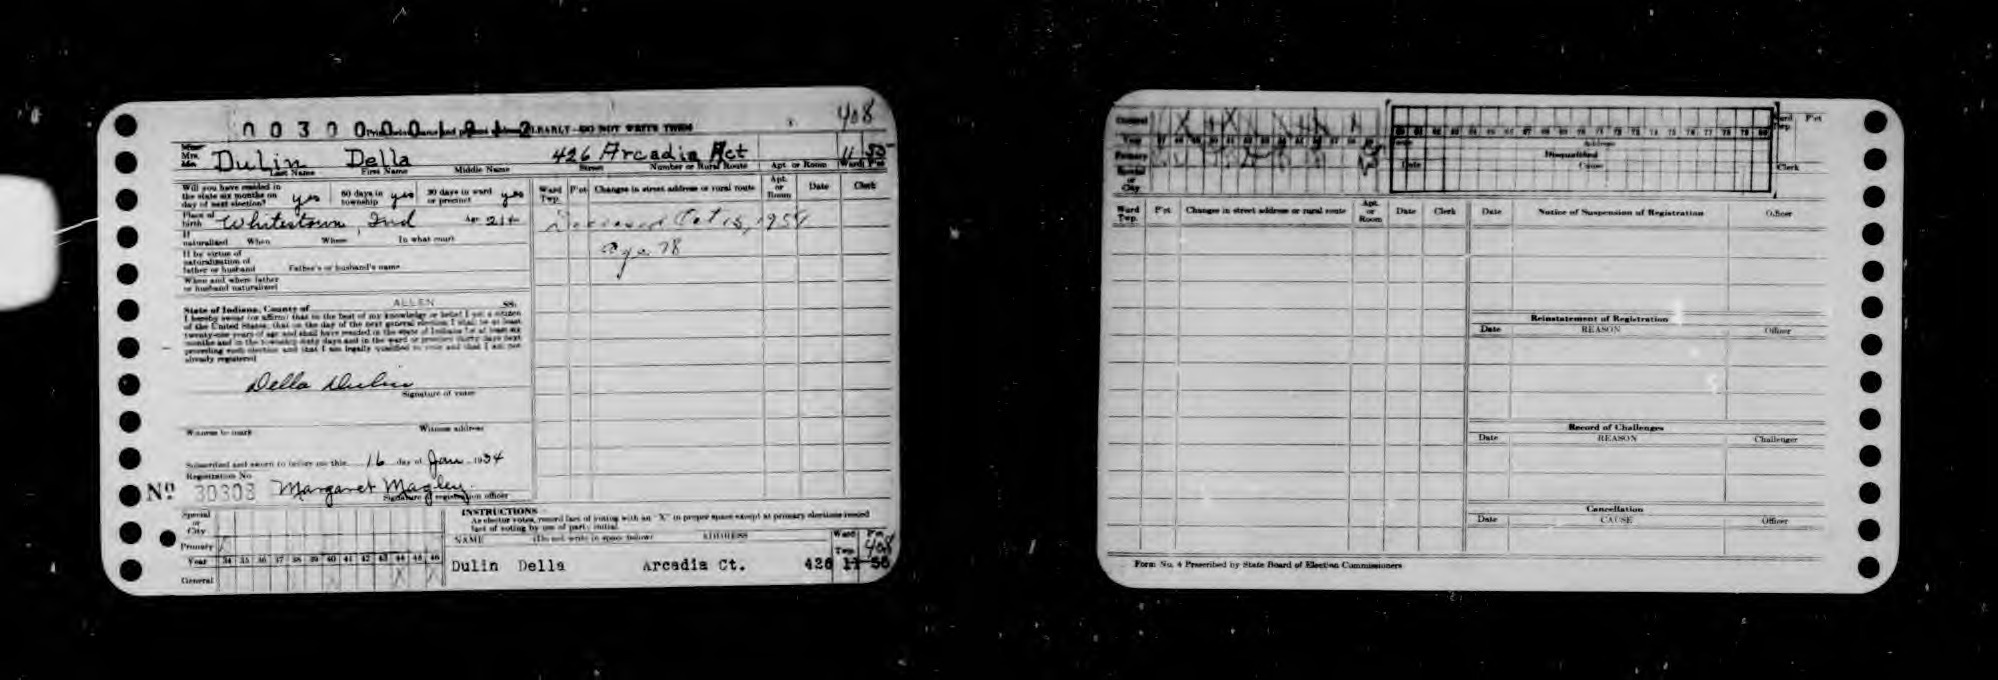 408
PRINT CLEARLY—DO NOT WRITE THEM
Miss
Mrs.
Mr.
Dulin Della 426 Arcadia Ct 11 55
Last Name First Name Middle Name Street Number or Rural Route Apt. or Room Ward Pct
Will you have resided in the state six months on day of next election? yes 60 days in township yes 30 days in ward or precinct yes
Place of birth Whitestown, Ind Age 21+
If naturalized When Where In what court
If by virtue of naturalization of father or husband Father's or husband's name
When and where father or husband naturalized
State of Indiana, County of ALLEN SS:
I hereby swear (or affirm) that to the best of my knowledge or belief I am a citizen
of the United States; that on the day of the next general election I shall be at least
twenty-one years of age and shall have resided in the state of Indiana for at least six
months and in the township sixty days and in the ward or precinct thirty days next
preceding such election and that I am legally qualified to vote and that I am not
already registered
Della Dulin
Signature of voter
Witness to mark Witness address
Subscribed and sworn to before me this 16 day of Jan 1934
Registration No.
No 30303 Margaret Magley
Signature of registration officer
Ward Twp. P'ct Changes in street address or rural route Apt. or Room Date Clerk
Deceased Oct 15,
age 78
Special or City
Primary
Year 34 35 36 37 38 39 40 41 42 43 44 45 46
General X X
INSTRUCTIONS
As elector votes, record fact of voting with an "X" in proper space except at primary elections record
fact of voting by use of party initial.
NAME (Do not write in space below) ADDRESS Ward Twp. P'ct
408
Dulin Della Arcadia Ct. 426 11 55
General
Year
Primary
Special or City
Disqualified
Date Cause
Address
Ward Twp. P'ct
Clerk
Ward Twp. P'ct Changes in street address or rural route Apt. or Room Date Clerk
Date Notice of Suspension of Registration Officer
Reinstatement of Registration
Date REASON Officer
Record of Challenges
Date REASON Challenger
Cancellation
Date CAUSE Officer
Form No. 4 Prescribed by State Board of Election Commissioners